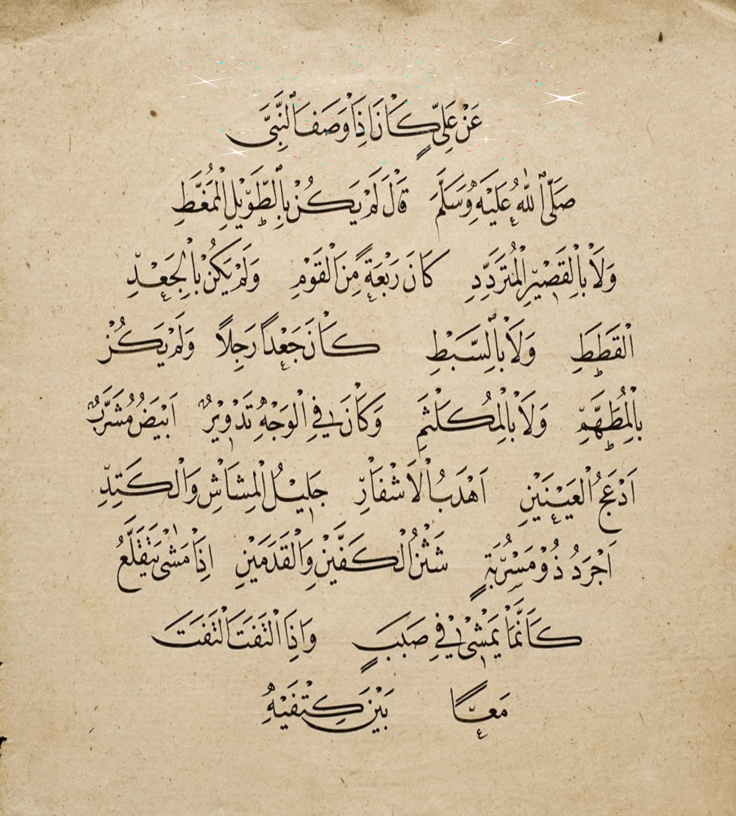 عَنْ عَلِيٍّ كَانَ اِذَا وَصَفَ النَّبِيَّ
صَلَّى اللهُ عَلَيْهِ وَسَلَّمَ قَالَ لَمْ يَكُنْ بِالطَّوِيْلِ الْمُمَّغَطِ
وَلَا بِالْقَصِيْرِ الْمُتَرَدِّدِ كَانَ رَبْعَةً مِنَ الْقَوْمِ وَلَمْ يَكُنْ بِالْجَعْدِ
الْقَطَطِ وَلَا بِالسَّبَطِ كَانَ جَعْدًا رَجِلًا وَلَمْ يَكُنْ
بِالْمُطَهَّمِ وَلَا بِالْمُكَلْثَمِ وَكَانَ فِي الْوَجْهِ تَدْوِيْرٌ اَبْيَضُ مُشْرَبٌ
اَدْعَجُ الْعَيْنَيْنِ اَهْدَبُ الْاَشْفَارِ جَلِيْلُ الْمُشَاشِ وَالْكَتِدِ
اَجْرَدُ ذُوْ مَسْرُبَةٍ شَثْنُ الْكَفَّيْنِ وَالْقَدَمَيْنِ اِذَا مَشٰى يَتَقَلَّعُ
كَاَنَّمَا يَمْشِيْ فِيْ صَبَبٍ وَاِذَا الْتَفَتَ الْتَفَتَ
مَعًا بَيْنَ كَتِفَيْهِ